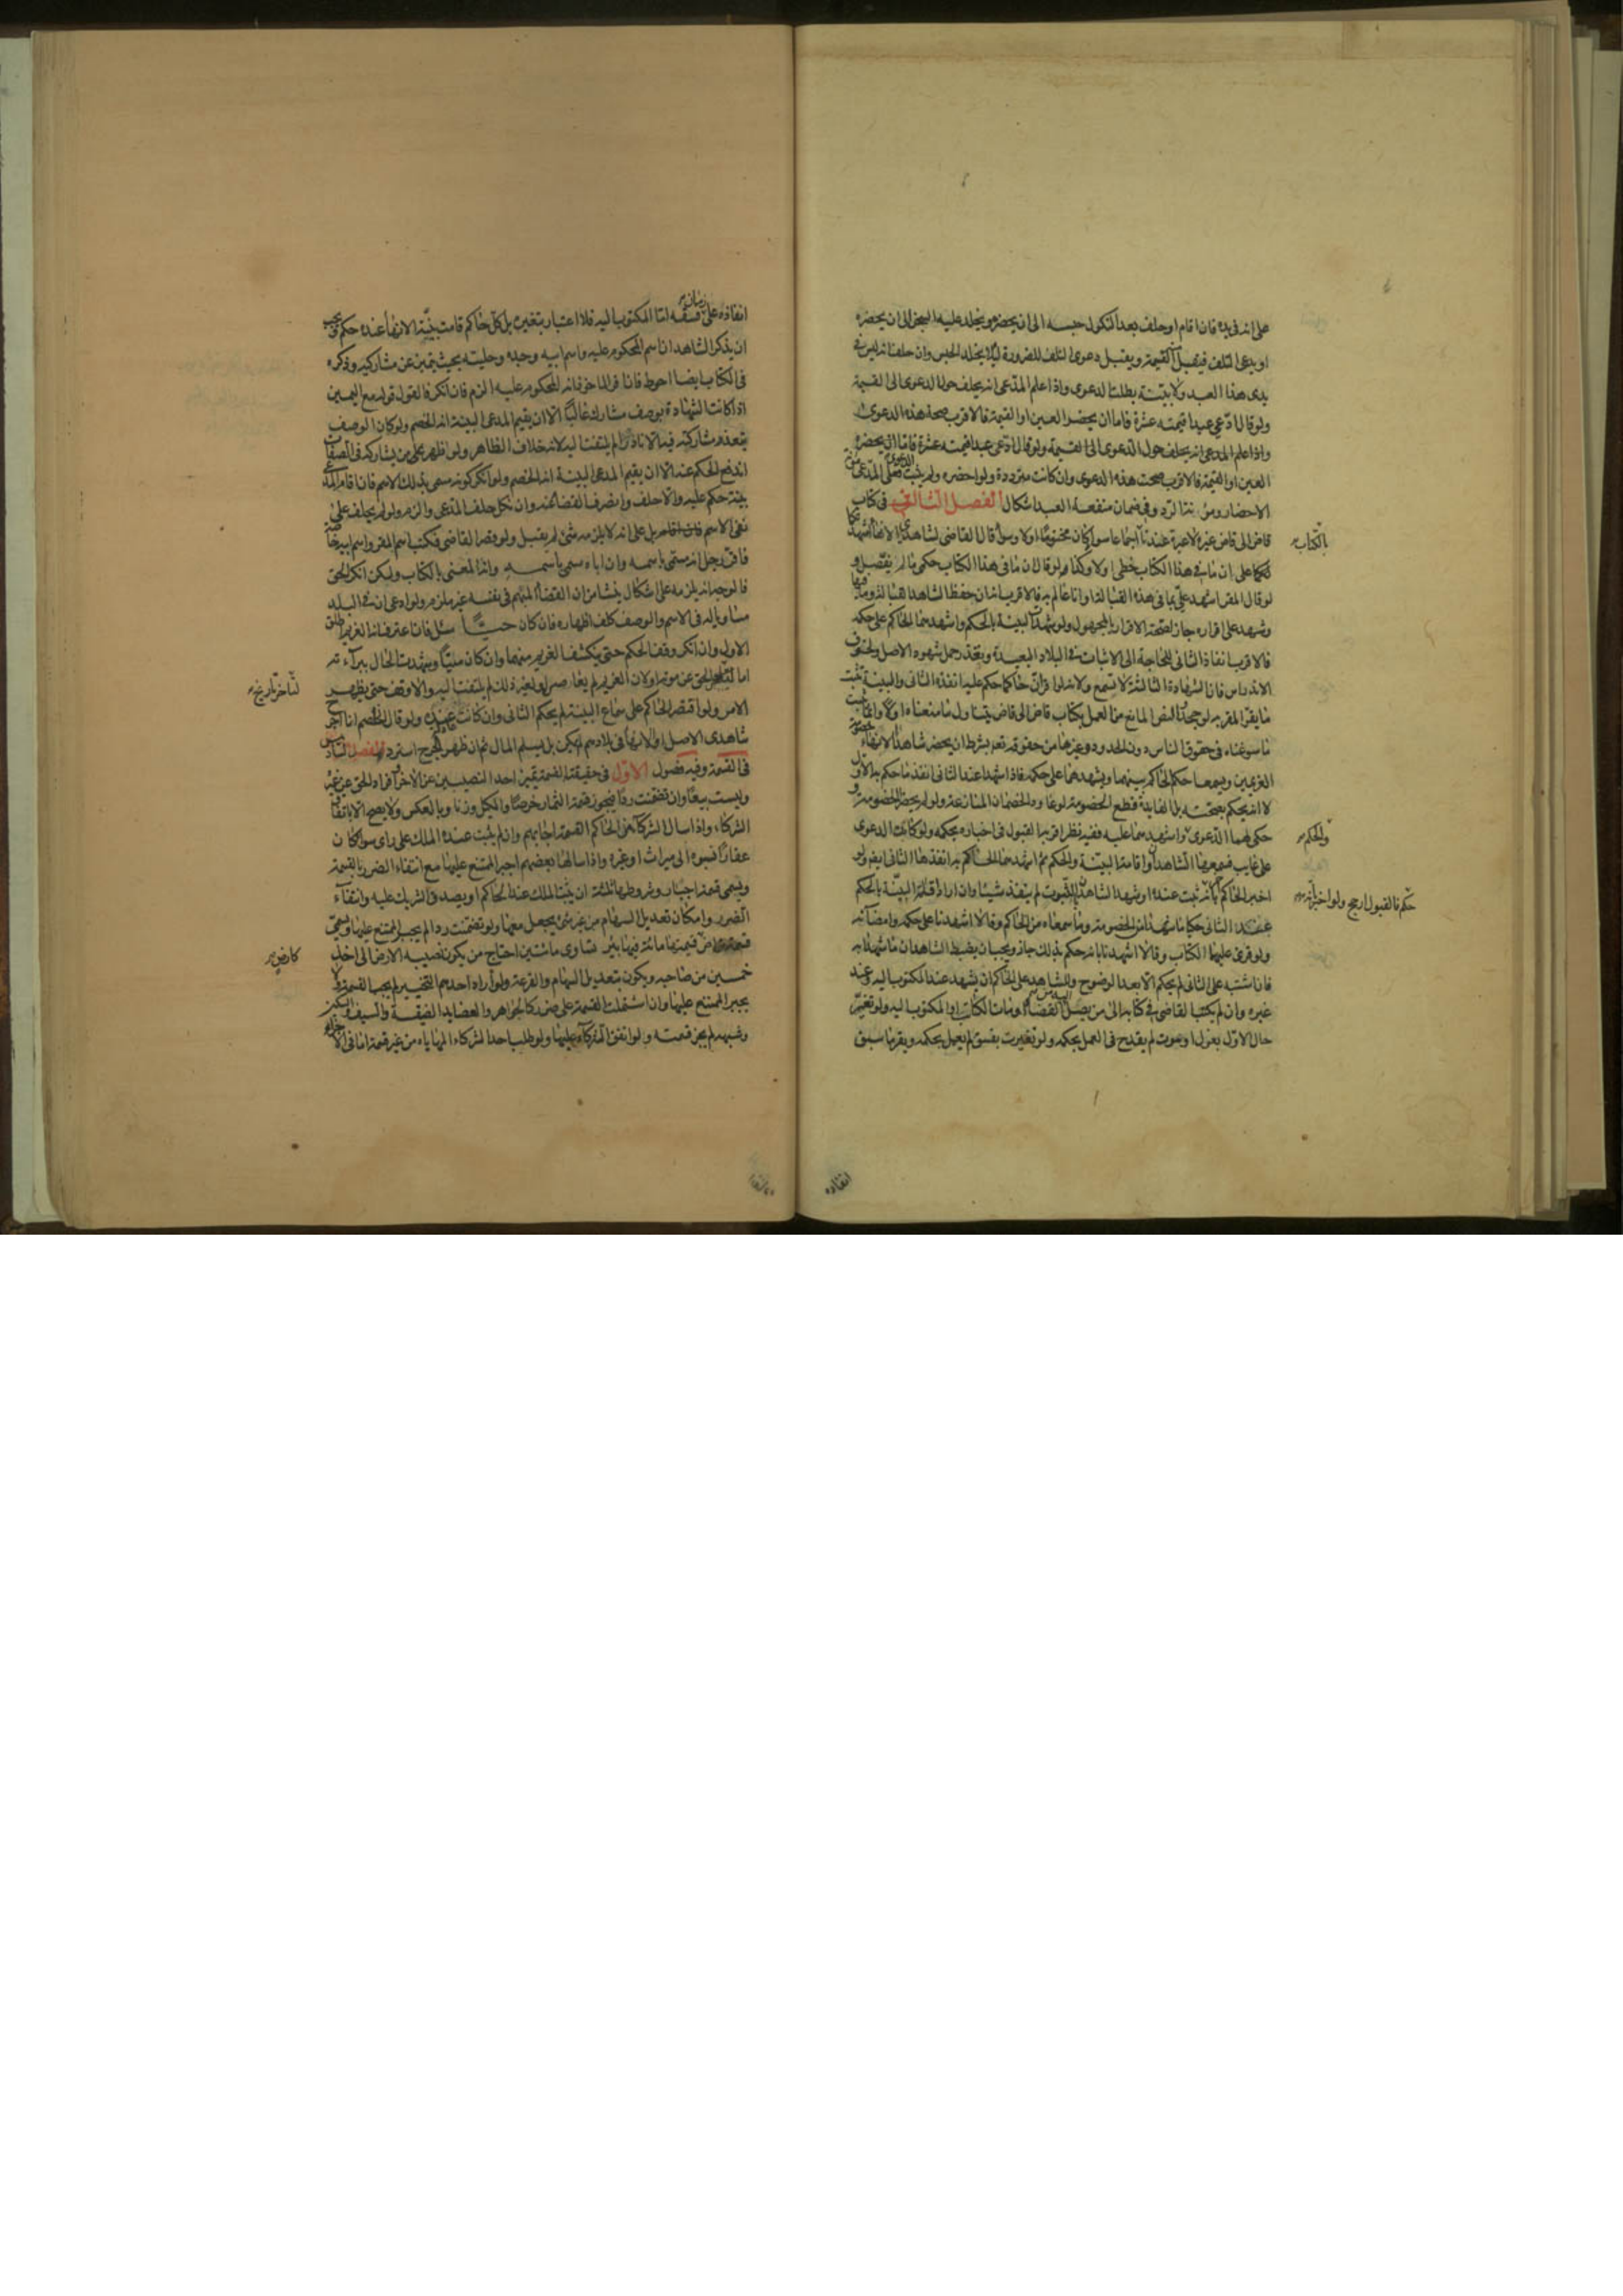 على انه في يده فان اقام او حلف بعد النكول حبسه الى ان يحضره ويخلد عليه السجن الى ان يحضره
او يدعى التلف فيقبل القيمة ويقبل دعوى التلف للضرورة لئلا يخلد الحبس وان حلف انه ليس في
يدى هذا العبد ولا بينة بطلت الدعوى واذا علم المدعى انه يحلف حول الدعوى الى القيمة
ولو قال ادعى عبدا قيمته عشرة فاما ان يحضر العين او القيمة فالاقرب صحة هذه الدعوى
واذا علم المدعى انه يحلف حول الدعوى الى القيمة ولو قال ادعى عبدا قيمته عشرة فاما ان يحضره
العين او القيمة فالاقرب صحت هذه الدعوى وان كانت مترددة ولو احضره ولم يثبت الدعوى فعلى المدعى مؤنة
الاحضار ومؤنة الرد وفي ضمان منفعة العبد اشكال الفصل الثالث في كتاب
قاض الى قاض غيره لا عبرة عندنا بالكتاب اجماعا سواء كان مختوما اولا وسواء قال القاضى لشاهدي الانهاء اشهدتكما
على ان ما في هذا الكتاب خطى اولا وكذا لو قال ان ما في هذا الكتاب حكمى ما لم يفصل و
لو قال المقر اشهد على بما في هذه القبالة وانا عالم به فالاقرب انه ان حفظ الشاهد القبالة وما فيها
وشهد على اقراره جاز لصحة الاقرار بالمجهول ولو شهدا البينة بالحكم واشهدهما الحاكم على حكمه
فالاقرب انفاذ الثانى للحاجة الى الاثبات في البلاد البعيدة وتعذر حمل شهود الاصل ولخوف
الاندراس فان الشهادة الثالثة لا تسمع ولانه لو اقر ان حاكما حكم عليه انفذه الثانى والبينة تثبت
ما يقر المقر به لو جحد والنص المانع من العمل بكتاب قاض الى قاض يتناول ما منعناه اولا وانما يثبت
ما سوغناه في حقوق الناس دون الحدود وغيرها من حقوقه تعم بشرط ان يحضر شاهدا الانهاء خصومة
الغريمين ويسمعا حكم الحاكم بينهما ويشهدهما على حكمه فاذا اشهدا عند الثانى انفذ ما حكم به الاول
لا انه يحكم بصحته بل الفايدة قطع الخصومة لو عاود الخصمان المنازعة ولو لم يحضرا الخصومة و
حكى لهما الدعوى والحكم واشهدهما عليه ففيه نظر اقربه القبول في اخباره بحكمه ولو كانت الدعوى
على غايب فسمعها الشاهدان واقامة البينة والحكم ثم اشهدهما الحاكم به انفذها الثانى ايضا ولو
اخبر الحاكم آخر بانه حكم فالقبول ارجح ولو اخبر انه ثبت عنده او شهد الشاهدان بالثبوت لم ينفذ شيئا وان اراد اقامة البينة بالحكم
عند الثانى حكيا ما شهداه من الخصومة وما سمعاه من الحاكم وقالا اشهدنا على حكمه وامضائه
ولو قرئ عليهما الكتاب وقالا اشهدنا بانه حكم بذلك جاز ويجب ان يضبط الشاهدان ما شهدا به
فان اشتبه على الثانى لم يحكم الا بعد الوضوح وللشاهد على الحاكم ان يشهد عند المكتوب اليه وعند
غيره وان لم يكتب القاضى في كتابه الى من يصل اليه من القضاة ومات الكاتب او المكتوب اليه ولو تغير
حال الاول بعزل او بموت لم يقدح في العمل بحكمه ولو تغيرت بفسق لم يعمل بحكمه ويقر ما سبق
انفاده
بالكتاب
والحكم
حكم فالقبول ارجح ولو اخبر انه
انفاذه على زمان فسقه اما المكتوب اليه فلا اعتبار بتغيره بل كل حاكم قامت بينة الانهاء عنده حكم ويجب
ان يذكر الشاهدان اسم المحكوم عليه واسم ابيه وجده وحليته بحيث يتميز عن مشاركيه وذكره
في الكتاب ايضا احوط فاذا اقر الماخوذ انه المحكوم عليه الزم فان انكر فالقول قوله مع اليمين
اذا كانت الشهادة بوصف مشارك غالبا الا ان يقيم المدعى البينة انه الخصم ولو كان الوصف
يتعذر مشاركته فيه الا نادرا لم يلتفت اليه لانه خلاف الظاهر ولو اظهر على من يشاركه في الصفات
اندفع الحكم عنه الا ان يقيم المدعى البينة انه الخصم ولو انكر كونه مسمى بذلك الاسم فان اقام المدعى
بينة حكم عليه والا حلف وانصرف القضاء عنه وان نكل حلف المدعى والزم ولو لم يحلف على
نفى الاسم بل على انه لا يلزمه شئ لم يقبل ولو قصر القاضى فكتب اسم المقر واسم ابيه خاصة
فاقر رجل انه مسمى باسمه وان اباه سمى باسمه وانه المعنى بالكتاب ولكن انكر الحق
فالوجه انه يلزمه على اشكال ينشا من ان القضاء المبهم في نفسه غير ملزم ولو ادعى ان في البلد
مساويا له في الاسم والوصف كلف اظهاره فان كان حيا سئل فان اعترف انه الغريم اطلق
الاول وان انكر وقف الحكم حتى ينكشف الغريم منهما وان كان ميتا وشهدت الحال ببراءته
اما لتاخر تاريخ الحق عن موته او لان الغريم لم يعاصره او لغير ذلك لم يلتفت اليه والا وقف حتى يظهر
الامر ولو اقتصر الحاكم على سماع البينة لم يحكم الثانى وان كانت ولو قال الخصم انا اجرح
شاهدى الاصل او الانهاء في بلادهم لم يمكن بل يسلم المال ثم ان ظهر الجرح استرد الفصل السادس
في القسمة وفيه فصول الاول في حقيقتها القسمة تميز احد النصيبين عن الآخر وافراد الحق عن غيره
وليست بيعا وان تضمنت ردا فيجوز قسمة الثمار خرصا والمكيل وزنا وبالعكس ولا يصح الا باتفاق
الشركاء واذا سال الشركاء من الحاكم القسمة اجابهم وان لم يثبت عنده الملك على راى سواء كان
عقارا نسبوه الى ميراث او غيره واذا سالها بعضهم اجبر الممتنع عليها مع انتفاء الضرر بالقسمة
ويسمى قسمة اجبار وشروطها ثلثة ان يثبت الملك عند الحاكم او يصدق الشريك عليه وانتفاء
الضرر وامكان تعديل السهام من غير شئ يجعل معها ولو تضمنت ردا لم يجبر الممتنع عليها ويسمى
كارض قيمتها مائة فيها بئر تساوى مائتين احتاج من يكون نصيبه الارض الى اخذ
خمسين من صاحبه ويكون بتعديل السهام والقرعة ولو اراد احدهم التخيير لم يجب القسمة ولا
يجبر الممتنع عليها وان اشتملت القسمة على ضرر كالجواهر والعضايد الضيقة والسيف والسكين
وشبهه لم يجز قسمته ولو اتفق الشركاء عليها ولو طلب احد الشركاء المهاياة من غير قسمة اما في الاجزاء
لتاخر تاريخ
كارض